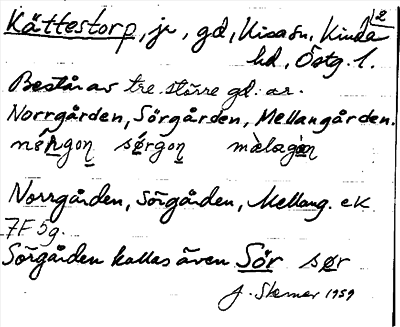 2
Kättestorp, jr, gd, Kisa sn, Kinda
hd, Östg. l.
Består av tre större gl. ar.
Norrgården, Sörgården, Mellangården.
sørgon
Norrgården, Sörgården, Mellang. ek
7F 5g.
Sörgården kallas även Sör sør
J. Stemer 1959